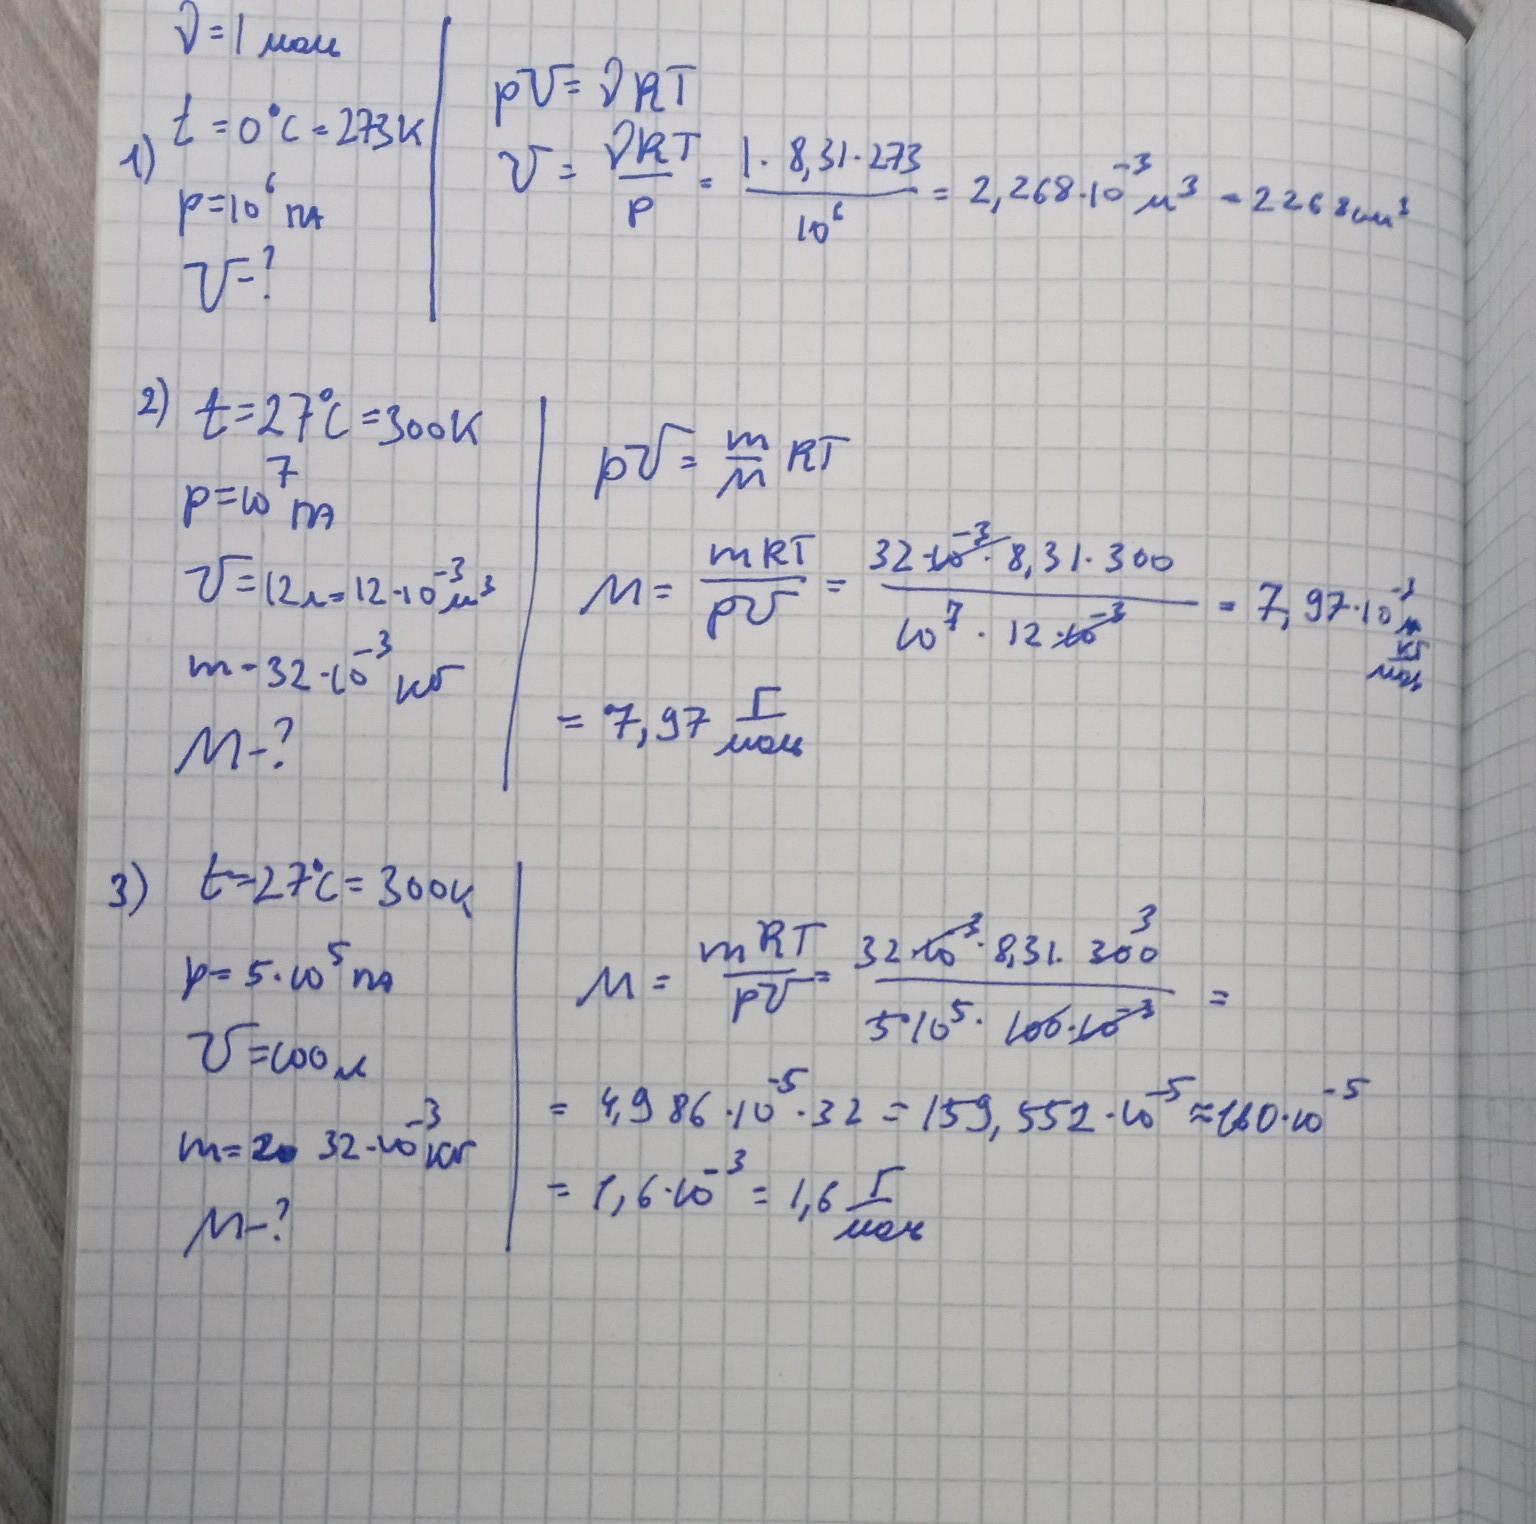 ν = 1 моль
1) t = 0°C = 273 K
p = 10⁶ ПА
V - ?
pV = νRT
V = νRT/p = 1 · 8,31 · 273 / 10⁶ = 2,268 · 10⁻³ м³ = 2268 см³
2) t = 27°C = 300 K
p = 10⁷ ПА
V = 12 л = 12 · 10⁻³ м³
m = 32 · 10⁻³ кг
M - ?
pV = m/M RT
M = mRT/pV = 32 · 10⁻³ · 8,31 · 300 / 10⁷ · 12 · 10⁻³ = 7,97 · 10⁻³ кг/моль
= 7,97 г/моль
3) t = 27°C = 300 K
p = 5 · 10⁵ ПА
V = 100 л
m = 32 · 10⁻³ кг
M - ?
M = mRT/pV = 32 · 10⁻³ · 8,31 · 300 3 / 5 · 10⁵ · 100 · 10⁻³ =
= 4,986 · 10⁻⁵ · 32 = 159,552 · 10⁻⁵ ≈ 160 · 10⁻⁵
= 1,6 · 10⁻³ = 1,6 г/моль